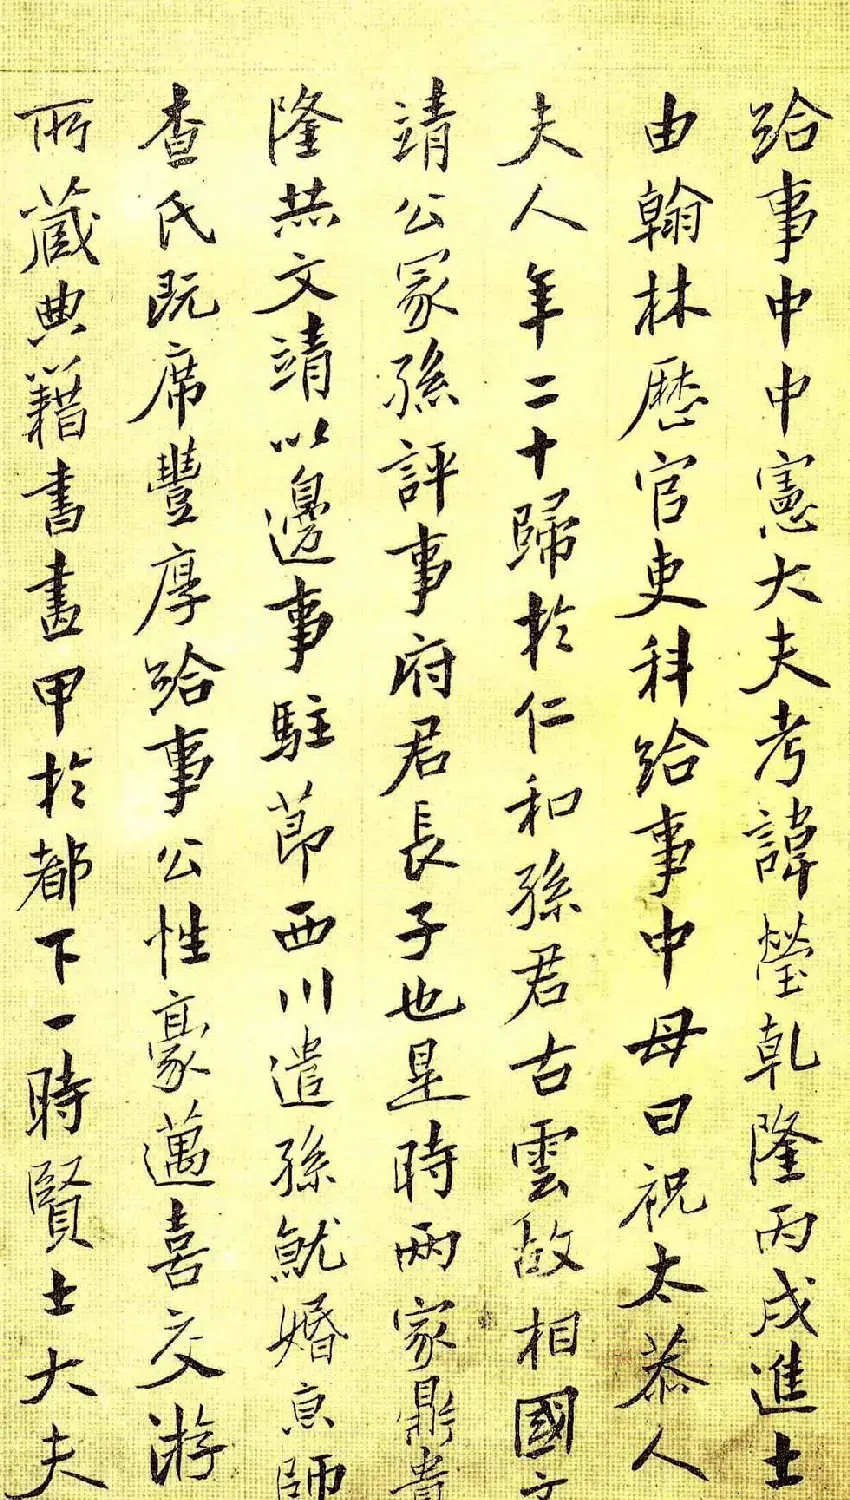 給事中中憲大夫考諱瑩乾隆丙戌進士
由翰林歷官吏科給事中母曰祝太恭人
夫人年二十歸於仁和孫君古雲故相國文
靖公冢孫評事府君長子也是時兩家鼎貴
隆赫文靖以邊事駐莭西川遣孫就婚京師
查氏既席豐厚給事公性豪邁喜交游
所蔵典籍書畫甲於都下一時賢士大夫